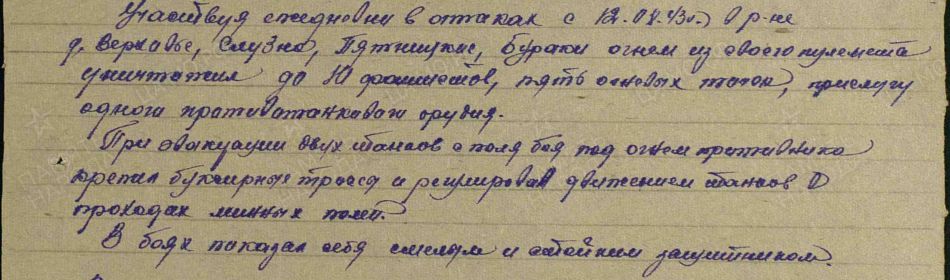 Участвуя ежедневно в атаках с 12.08.43г. в р-не
д. Верховье, Слузна, Пятницкие, Бураки огнем из своего пулемета
уничтожил до 10 фашистов, пять огневых точек, прислугу
одного противотанкового орудия.
При эвакуации двух танков с поля боя под огнем противника
крепил буксирные тросса и регулировал движением танков в
проходах минных полей.
В боях показал себя смелым и стойким защитником.